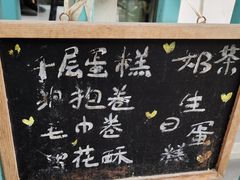 千层蛋糕 奶茶
泡抱卷 生
毛巾卷 日蛋
雪花酥 糕